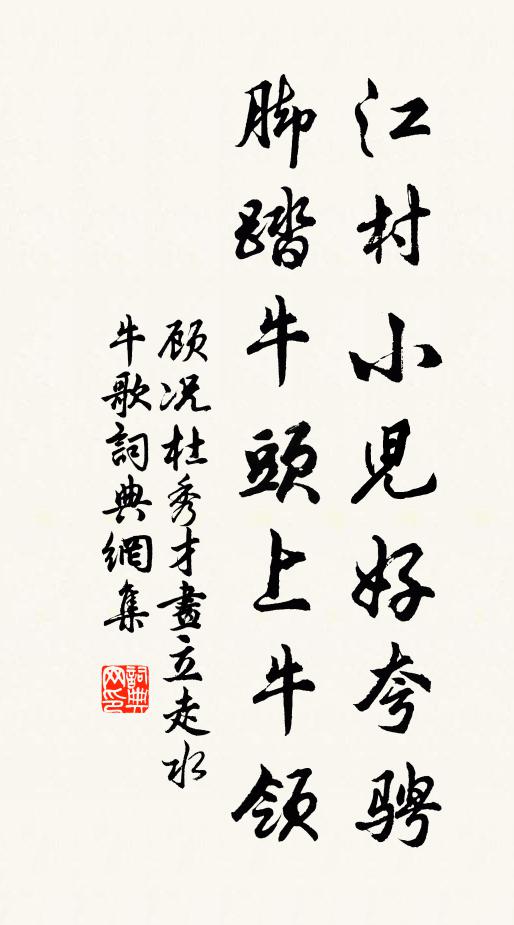 江村小児好夸骋
脚踏牛頭上牛领
顾况杜秀才畫立走水
牛歌詞典網集
詞典
网印